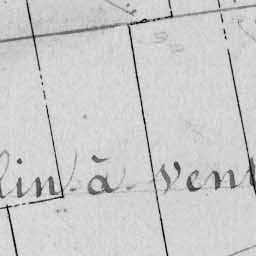 lin à vent